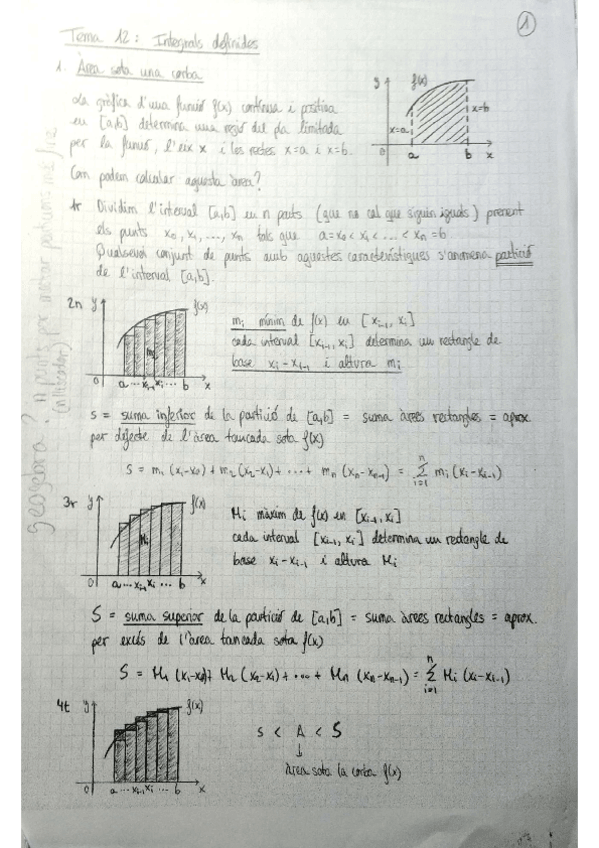 1
Tema 12: Integrals definides
1. Àrea sota una corba
La gràfica d'una funció f(x) contínua i positiva
en [a,b] determina una regió del pla limitada
per la funció, l'eix x i les rectes x=a i x=b.
Com podem calcular aquesta àrea?
y f(x) x=a x=b 0 a b x
1r Dividim l'interval [a,b] en n parts (que no cal que siguin iguals) prenent
els punts x₀, x₁, ..., xₙ tals que a=x₀<x₁<...<xₙ=b
Qualsevol conjunt de punts amb aquestes característiques s'anomena partició
de l'interval [a,b].
2n y f(x) mᵢ 0 a ... xᵢ₋₁ xᵢ ... b x
mᵢ mínim de f(x) en [xᵢ₋₁, xᵢ]
cada interval [xᵢ₋₁, xᵢ] determina un rectangle de
base xᵢ-xᵢ₋₁ i altura mᵢ
s = suma inferior de la partició de [a,b] = suma àrees rectangles = aprox
per defecte de l'àrea tancada sota f(x)
s = m₁ (x₁-x₀) + m₂ (x₂-x₁) + ... + mₙ (xₙ-xₙ₋₁) = Σⁿᵢ₌₁ mᵢ (xᵢ-xᵢ₋₁)
3r y f(x) Mᵢ 0 a ... xᵢ₋₁ xᵢ ... b x
Mᵢ màxim de f(x) en [xᵢ₋₁, xᵢ]
cada interval [xᵢ₋₁, xᵢ] determina un rectangle de
base xᵢ-xᵢ₋₁ i altura Mᵢ
S = suma superior de la partició de [a,b] = suma àrees rectangles = aprox.
per excés de l'àrea tancada sota f(x)
S = M₁ (x₁-x₀) + M₂ (x₂-x₁) + ... + Mₙ (xₙ-xₙ₋₁) = Σⁿᵢ₌₁ Mᵢ (xᵢ-xᵢ₋₁)
4t y f(x) 0 a ... xᵢ₋₁ xᵢ ... b x
s < A < S
↓
àrea sota la corba f(x)
geogebra? n punts per
(nlliscador)